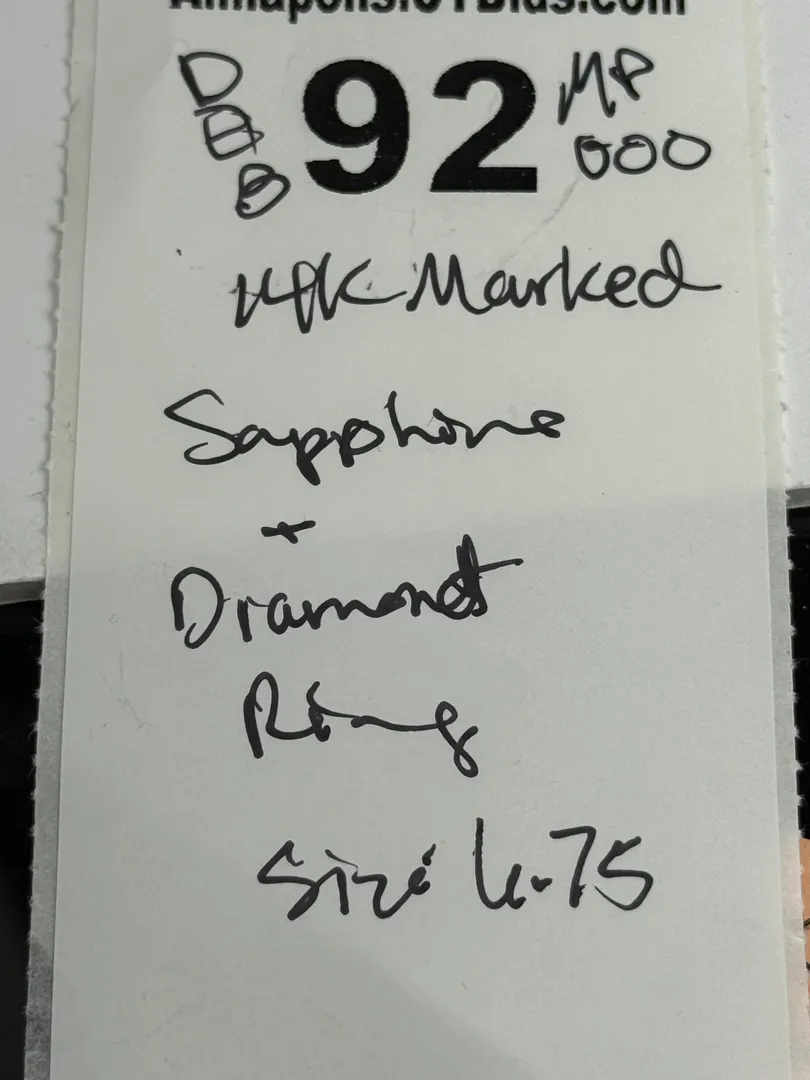 Annapolis.CTBids.com
D 92 MP
E 000
B
14K Marked
Sapphire
+
Diamond
Ring
Size 6.75